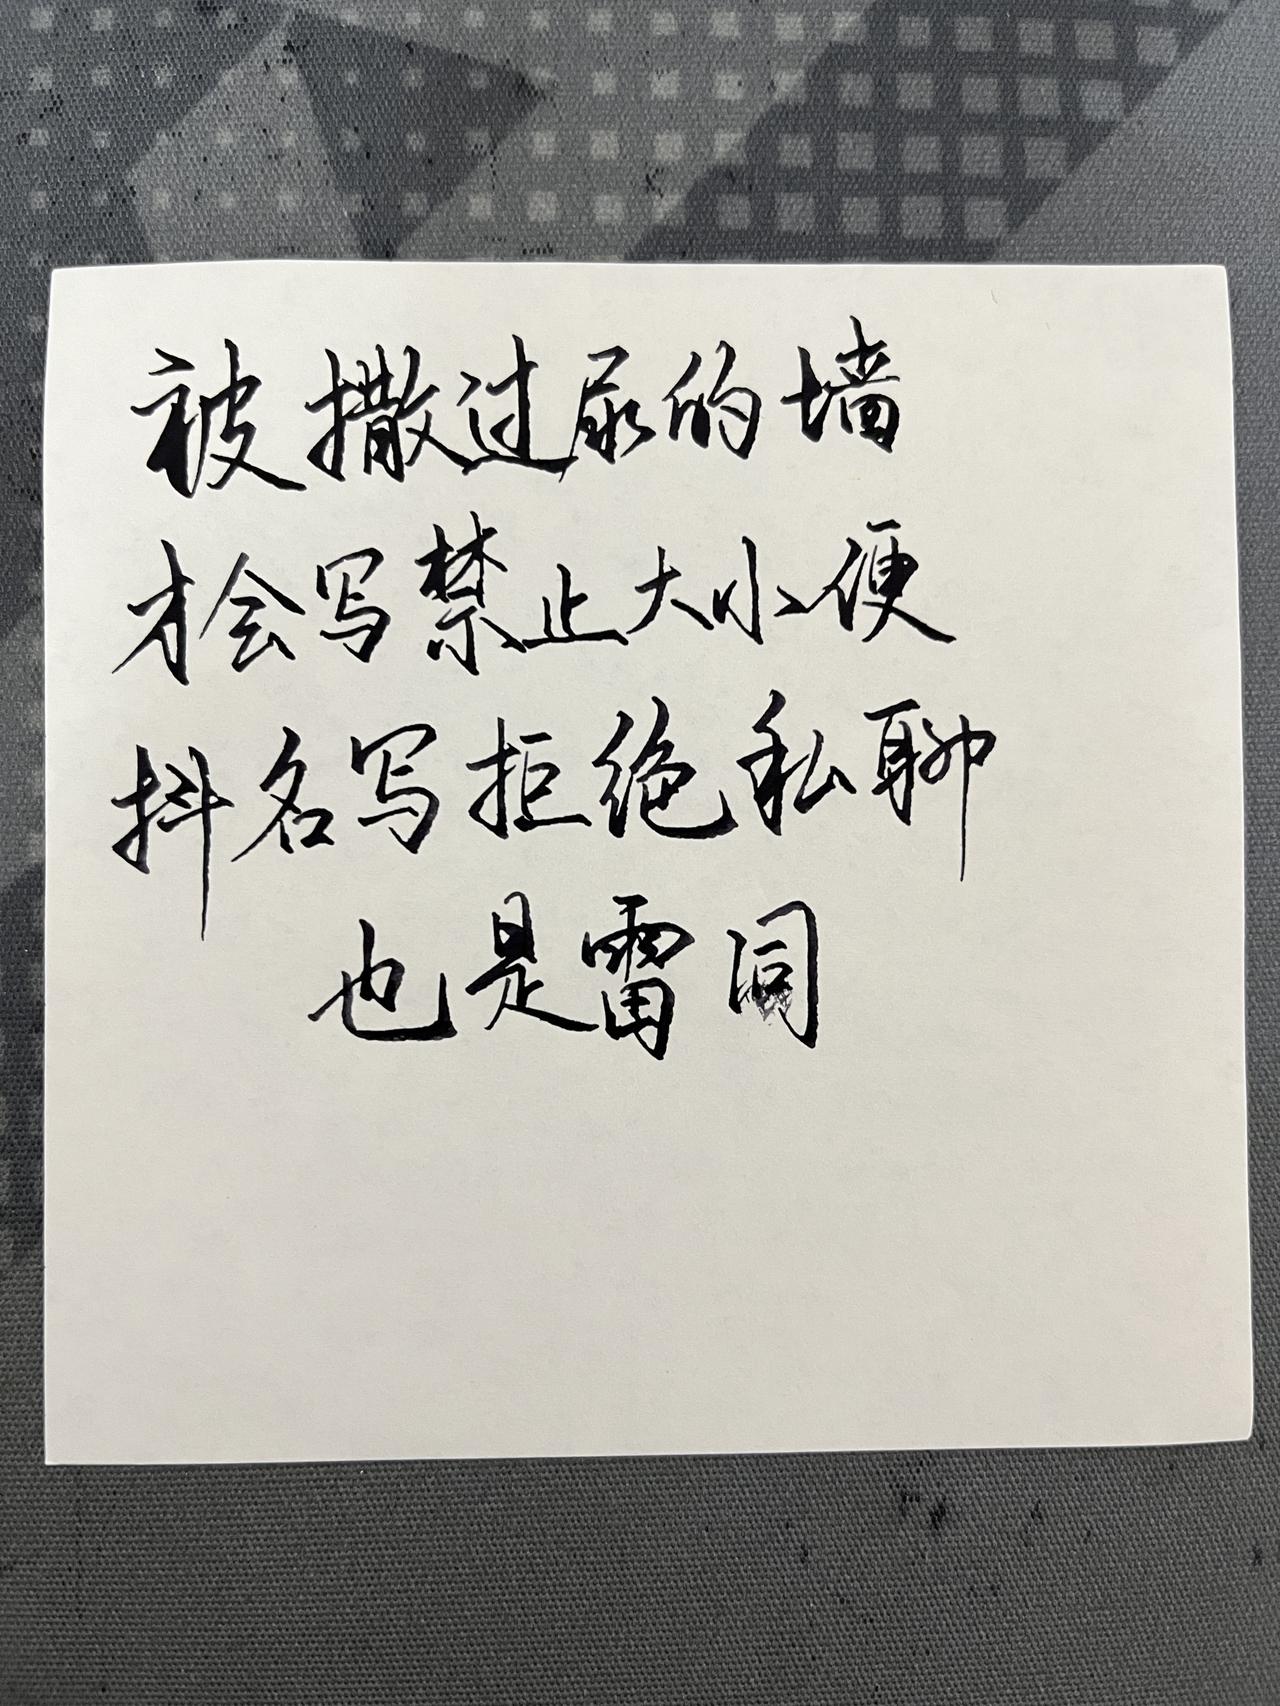 被撒过尿的墙
才会写禁止大小便
抖名写拒绝私聊
也是雷同